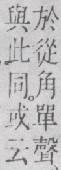 於從角單聲
與此同。或云